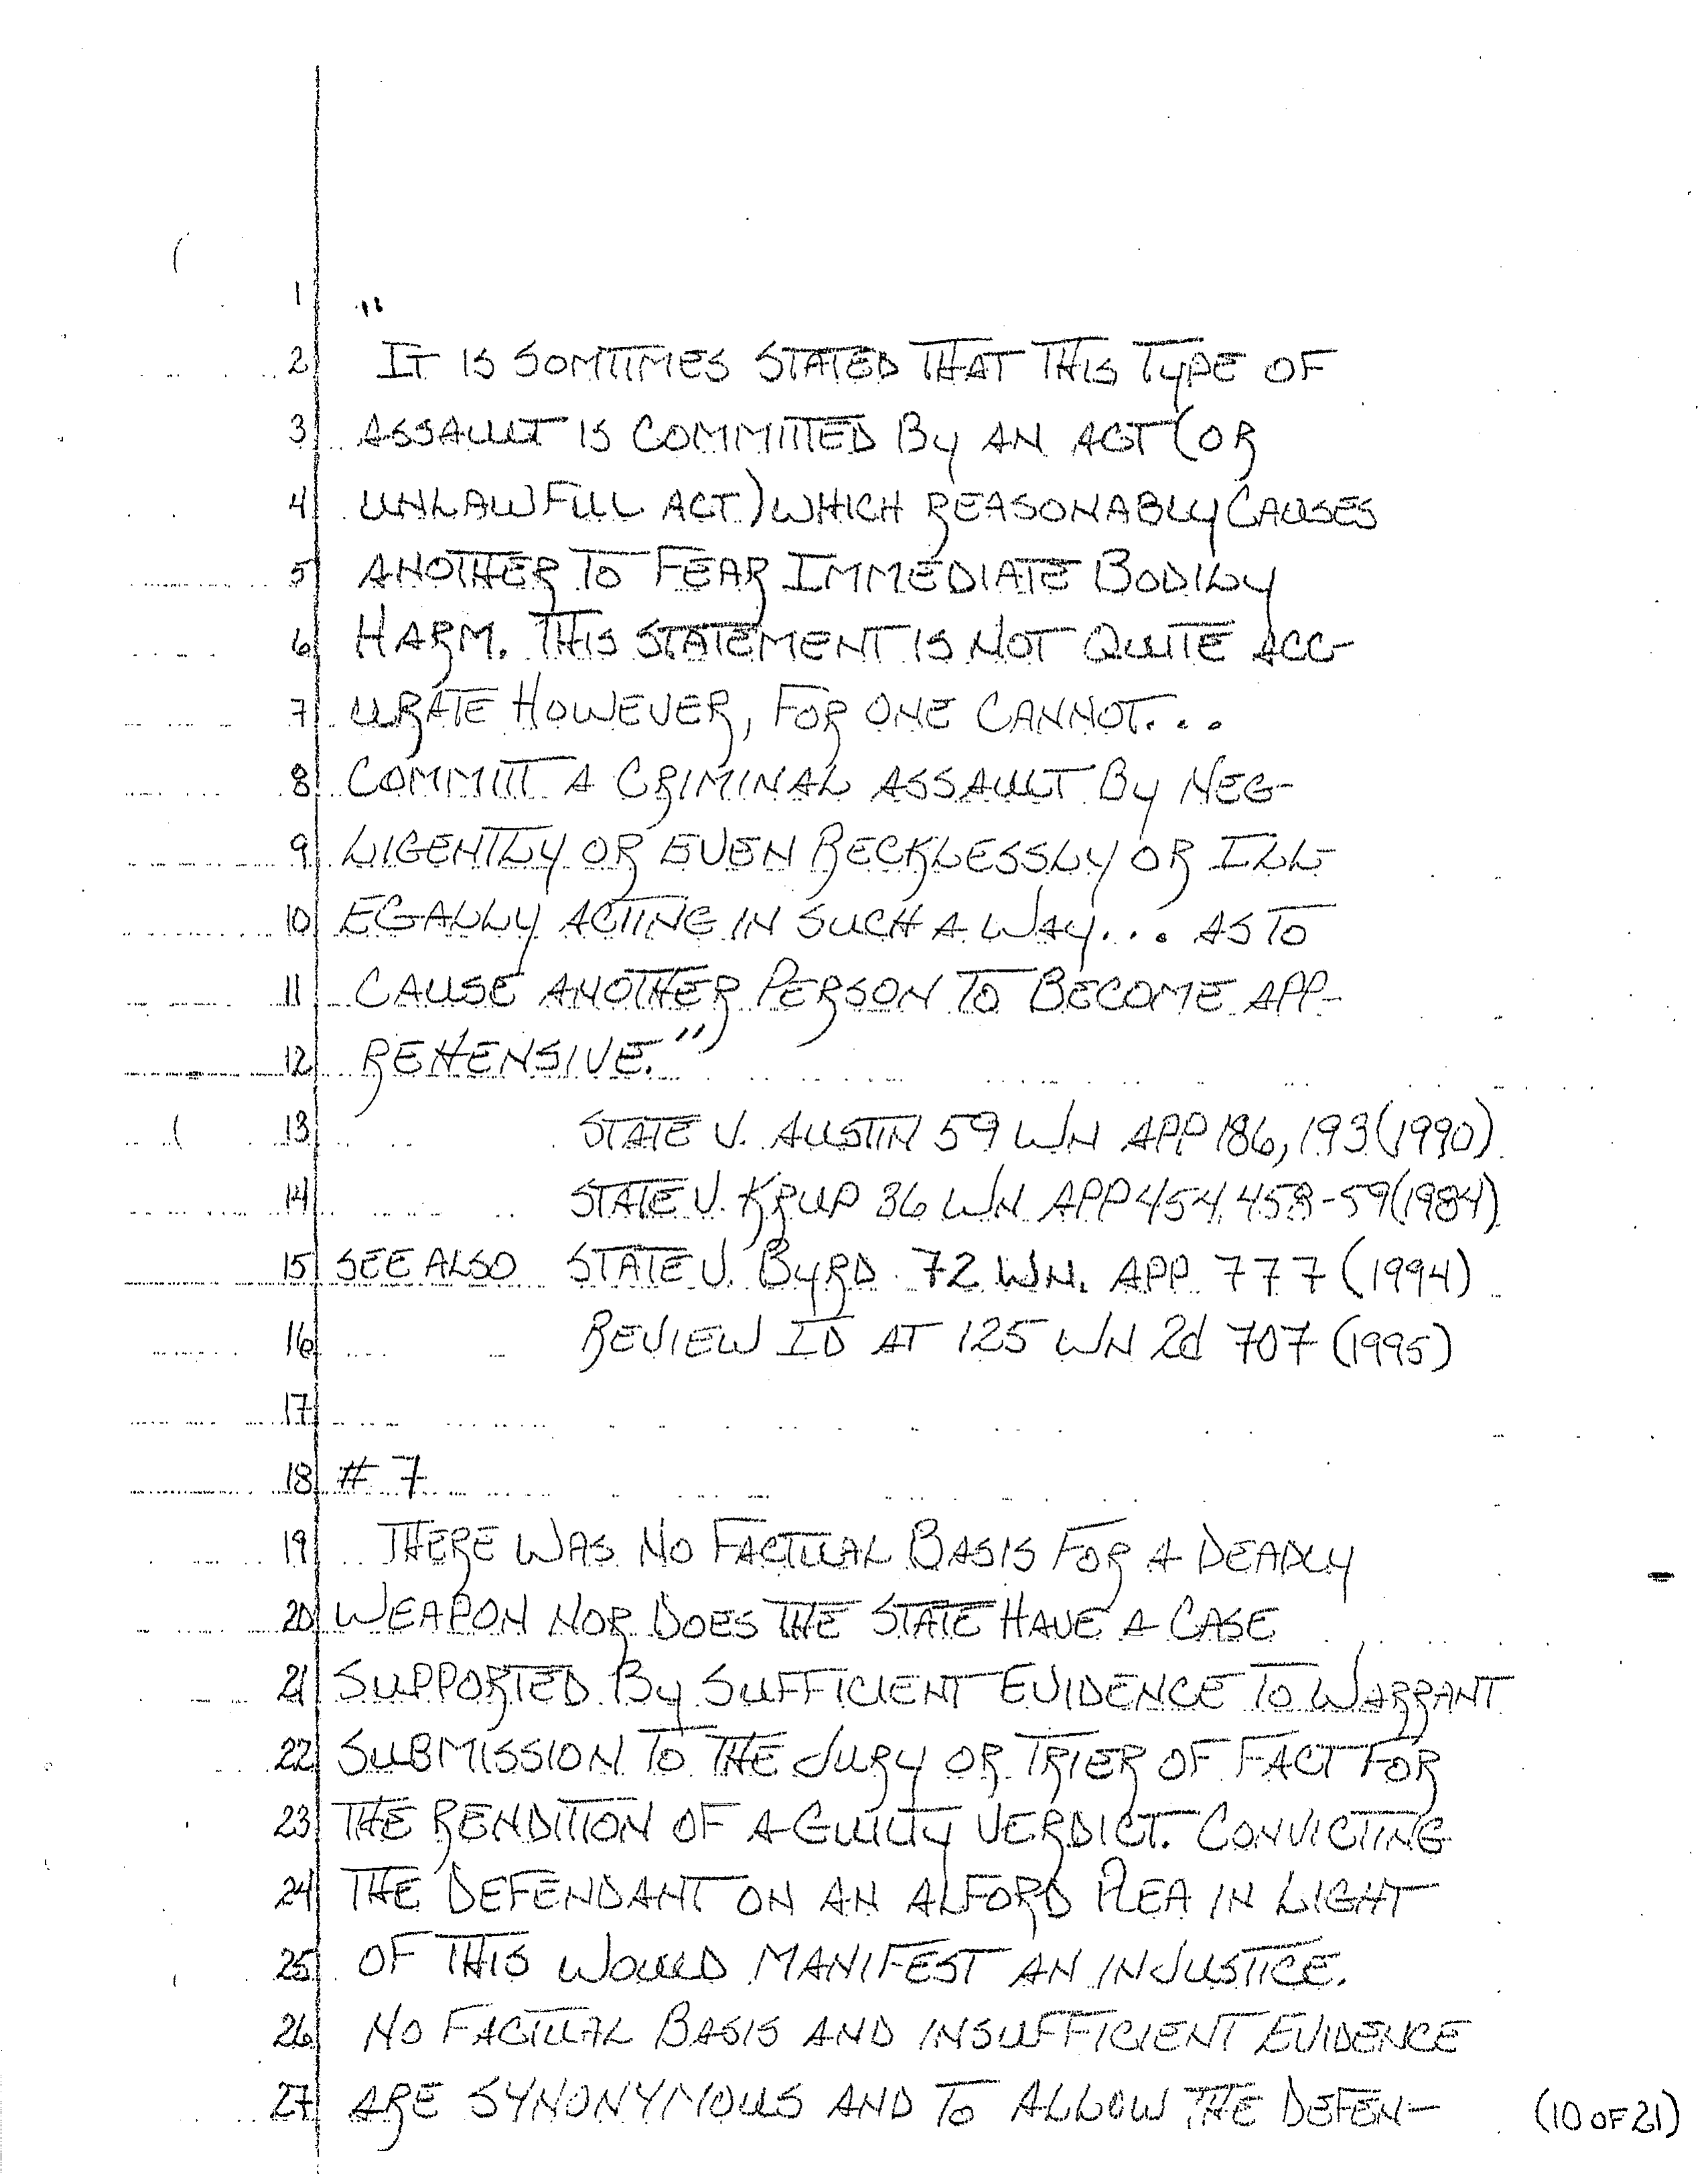 1 "
2 IT IS SOMTIMES STATED THAT THIS TYPE OF
3 ASSAULT IS COMMITTED BY AN ACT (OR
4 UNLAWFULL ACT) WHICH REASONABLY CAUSES
5 ANOTHER TO FEAR IMMEDIATE BODILY
6 HARM. THIS STATEMENT IS NOT QUITE ACC-
7 URATE HOWEVER, FOR ONE CANNOT...
8 COMMITT A CRIMINAL ASSAULT BY NEG-
9 LIGENTLY OR EVEN RECKLESSLY OR ILL-
10 EGALLY ACTING IN SUCH A WAY... AS TO
11 CAUSE ANOTHER PERSON TO BECOME APP-
12 REHENSIVE."
13 STATE V. AUSTIN 59 WN APP 186, 193 (1990)
14 STATE V. KRUP 36 WN APP 454, 458-59 (1984)
15 SEE ALSO STATE V. BYRD 72 WN. APP. 777 (1994)
16 REVIEW ID AT 125 WN 2d 707 (1995)
17
18 # 7
19 THERE WAS NO FACTUAL BASIS FOR A DEADLY
20 WEAPON NOR DOES THE STATE HAVE A CASE
21 SUPPORTED BY SUFFICIENT EVIDENCE TO WARRANT
22 SUBMISSION TO THE JURY OR TRIER OF FACT FOR
23 THE RENDITION OF A GUILTY VERDICT. CONVICTING
24 THE DEFENDANT ON AN ALFORD PLEA IN LIGHT
25 OF THIS WOULD MANIFEST AN INJUSTICE.
26 NO FACTUAL BASIS AND INSUFFICIENT EVIDENCE
27 ARE SYNONYMOUS AND TO ALLOW THE DEFEN-
(10 OF 21)